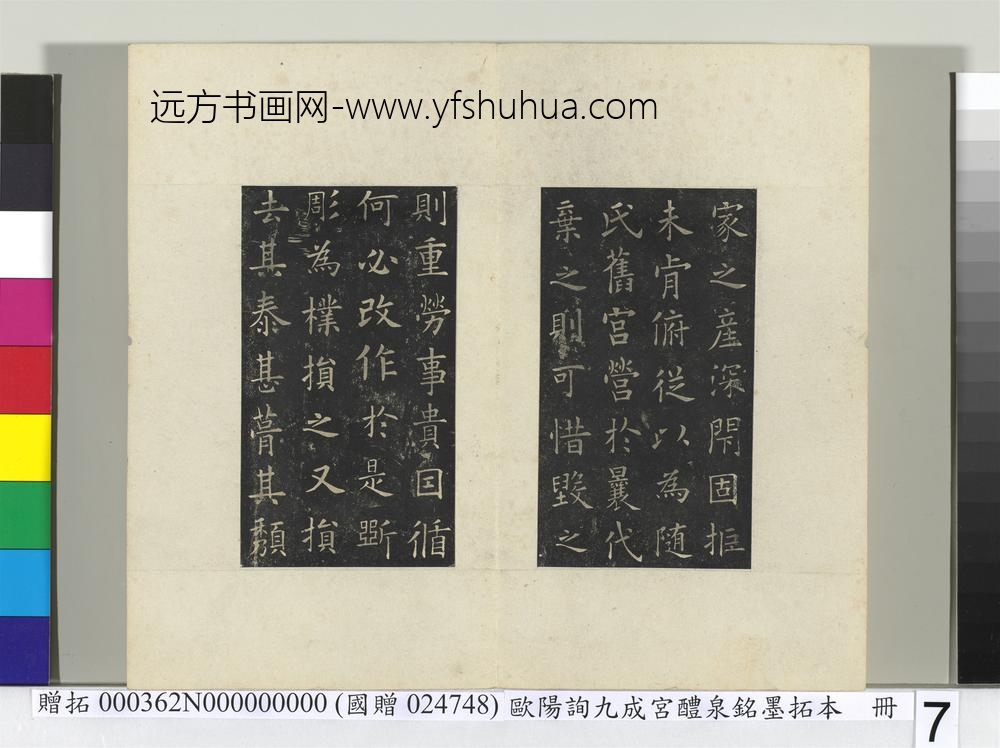 远方书画网-www.yfshuhua.com
家之産深閇固拒
未肯俯從以為随
氏舊宫營於曩代
棄之則可惜毀之
則重勞事貴因循
何必改作於是斲
彫為樸損之又損
去其泰甚葺其頹
贈拓 000362N000000000 (國贈 024748) 歐陽詢九成宮醴泉銘墨拓本 冊
7